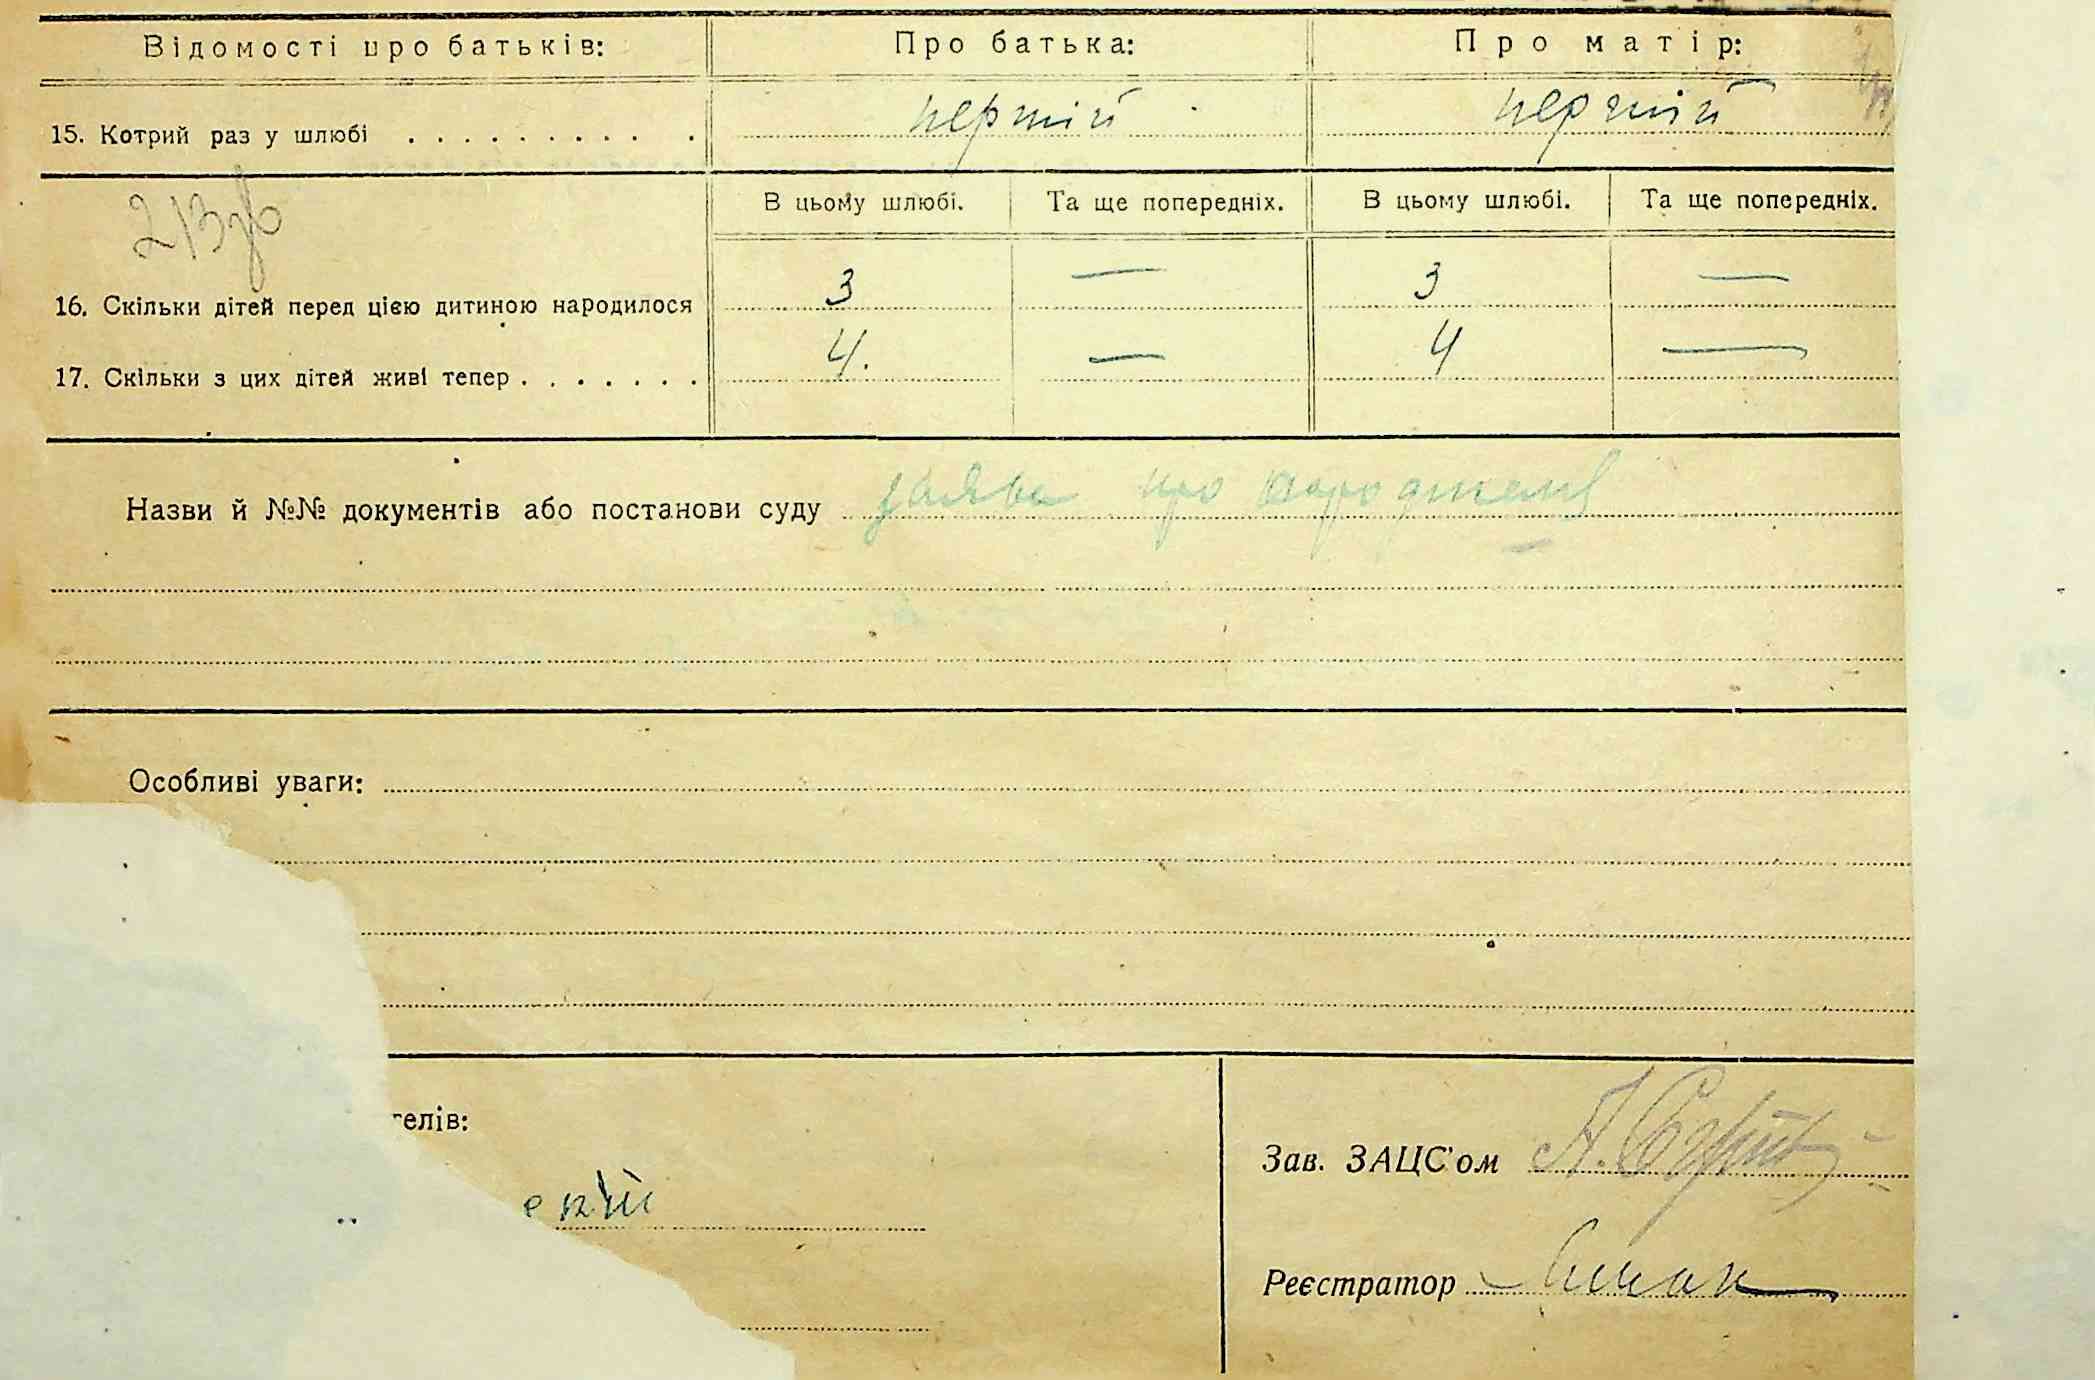 Відомості про батьків: Про батька: Про матір:
15. Котрий раз у шлюбі . . . . . . . . . . перший перший
В цьому шлюбі. Та ще попередніх. В цьому шлюбі. Та ще попередніх.
16. Скільки дітей перед цією дитиною народилося 3 — 3 —
17. Скільки з цих дітей живі тепер . . . . . . . 4. — 4 —
Назви й №№ документів або постанови суду заява про народження
Особливі уваги:
телів:
Зав. ЗАЦС'ом
Реєстратор